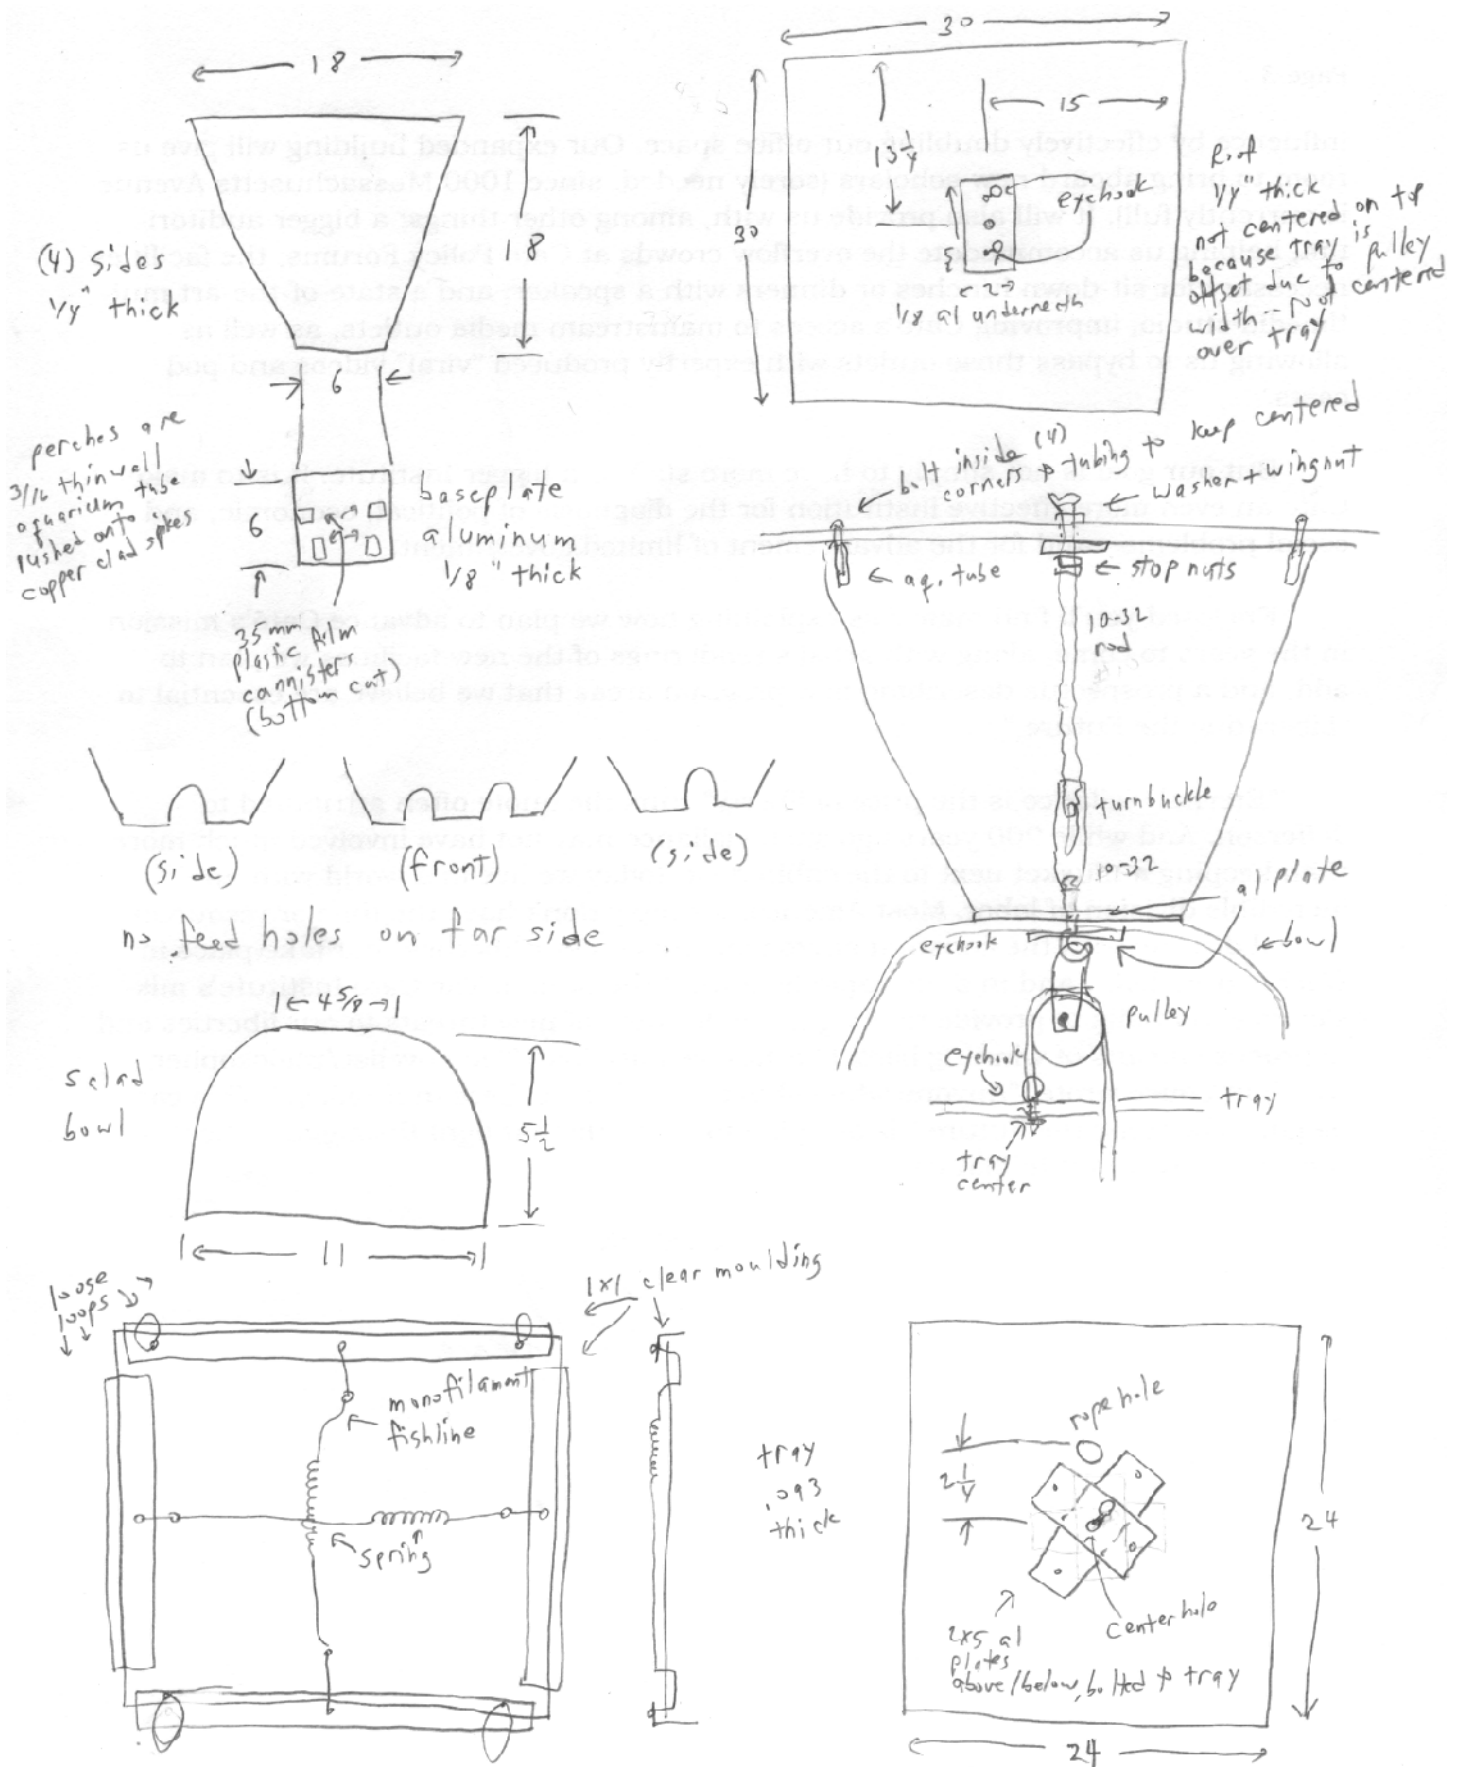 18
18
(4) sides
1/4" thick
6
perches are
3/16 thinwall
aquarium tube
pushed onto
copper clad spikes
6
baseplate
aluminum
1/8" thick
35mm
plastic film
cannisters
(bottom cut)
(side)
(front)
(side)
no feed holes on far side
4 5/8
salad
bowl
5 1/2
11
30
30
13 1/4
15
eyehook
5
2
1/8 al underneath
1/4" thick
not centered on top
because tray is
offset due to pulley
width - Not centered
over tray
bolt inside (4)
corners
tubing to keep centered
washer + wingnut
aq. tube
stop nuts
10-32
rod
turnbuckle
10-32
al plate
eyehook
bowl
pulley
eyehook
tray
tray
center
loose
loops
1x1 clear moulding
monofilament
fishline
spring
tray
.093
thick
rope hole
2 1/4
24
center hole
2x5 al
plates
above/below, bolted to tray
24